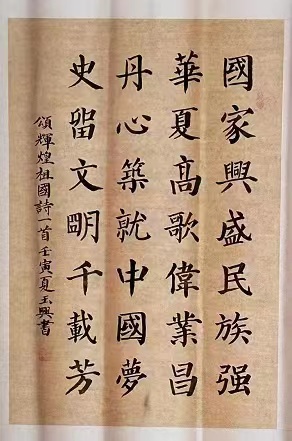 國家興盛民族强
華夏高歌偉業昌
丹心築就中國夢
史留文明千載芳
頌輝煌祖國詩一首壬寅夏玉興書